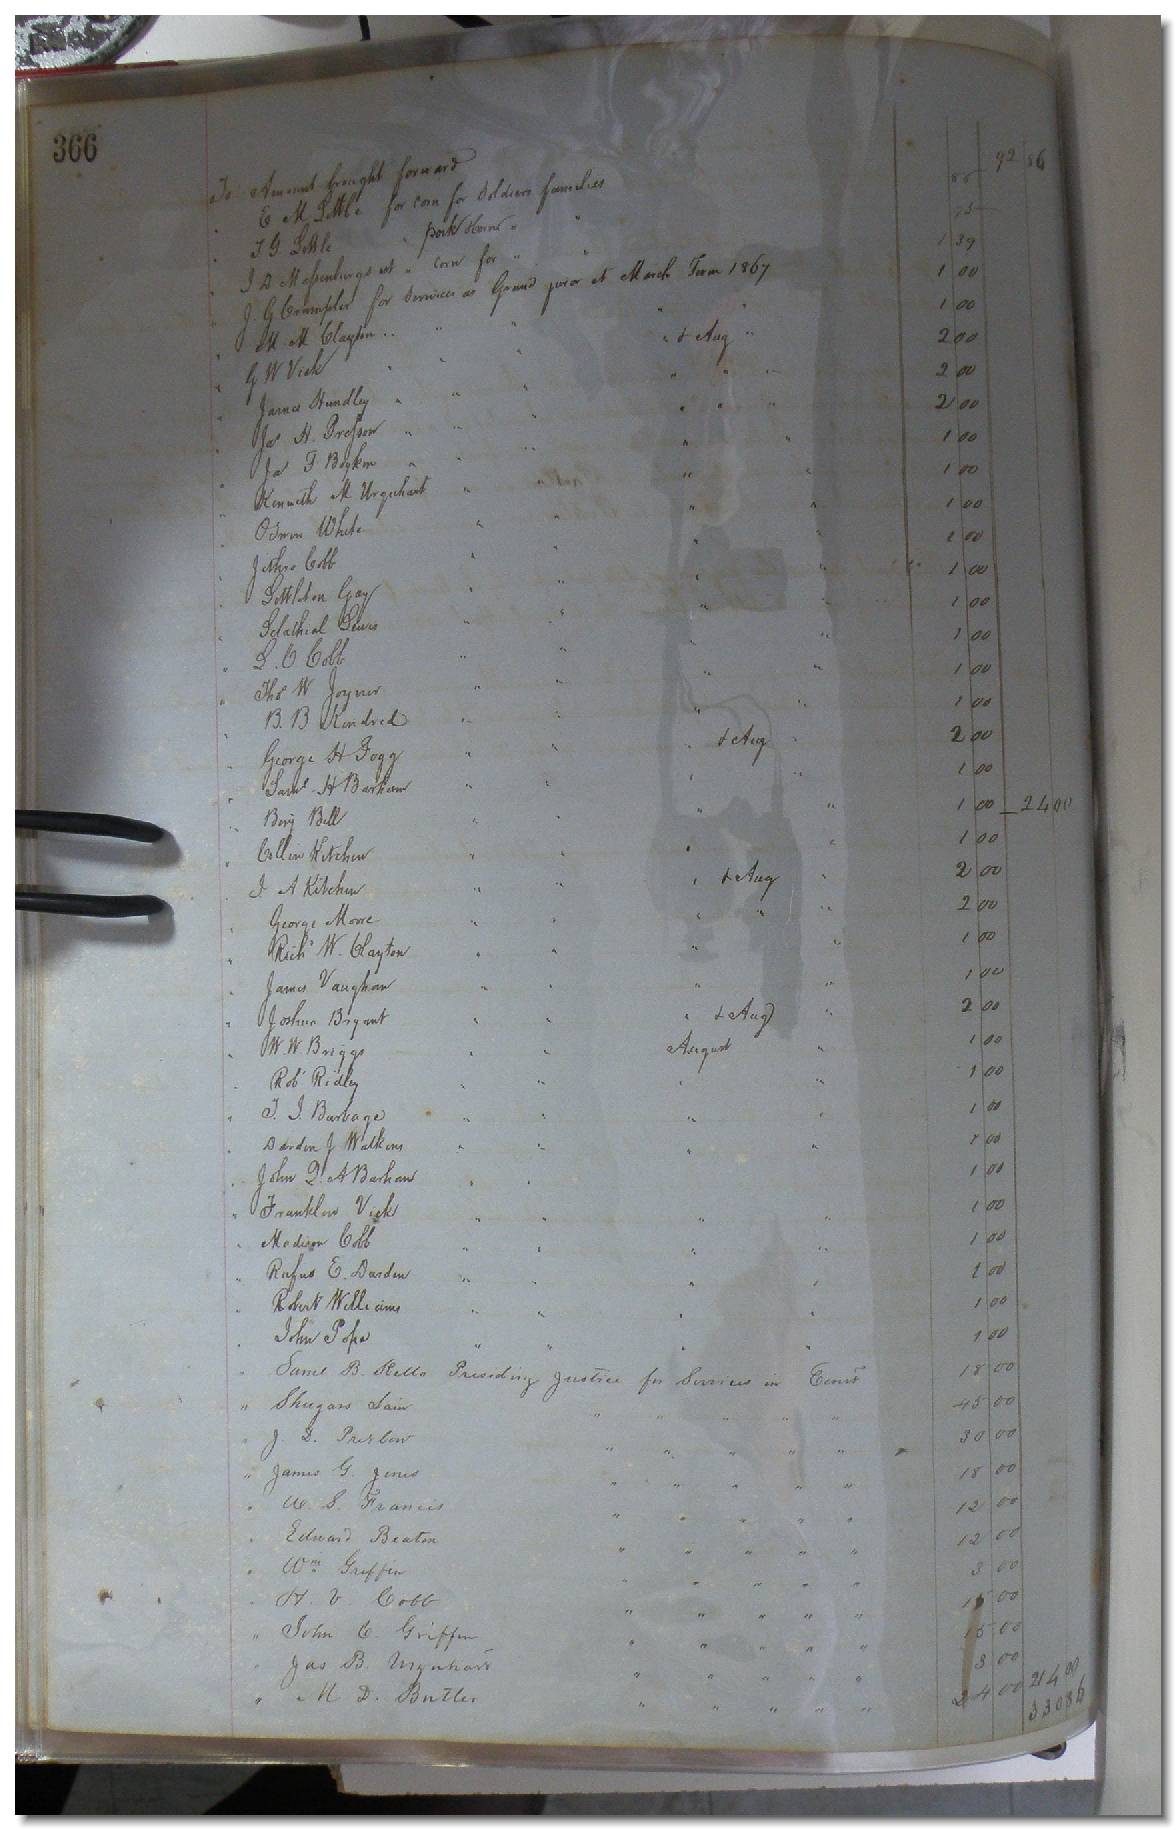 366
To Amount brought forward 92 86
" E M Little for corn for Soldiers families
" T G Little " pork & corn " "
" J D Massenburgs est " corn for " " 1 39
" J. G Crumpler for Services as Grand juror at March Term 1867 1 00
" M M Clayton " " " " " 1 00
" G W Vick " " " " & Aug " 2 00
" James Hundley " " " " " " 2 00
" Jas H. Presson " " " " " " 2 00
" Ja F Boykin " " " " " 1 00
" Kenneth M Urquhart " " " " 1 00
" Edwin White " " " " 1 00
" Jethro Cobb " " " " 1 00
" Littleton Gay " " " 1 00
" Selathial Lewis " " " " 1 00
" L. O Cobb " " " " 1 00
" Thos W Joyner " " " " 1 00
" B. B Kindred " " " " 1 00
" George H Fogg " " " & Aug " 2 00
" Saml H Barham " " " " 1 00
" Benj Bell " " " " 1 00 24 00
" Collin Kitchen " " " " 1 00
" J A Kitchen " " " & Aug " 2 00
" George Moore " " " " " 2 00
" Richd W. Clayton " " " " 1 00
" James Vaughan " " " " 1 00
" Joshua Bryant " " " & Aug " 2 00
" W W Briggs " " August " 1 00
" Rob Ridley " " " " 1 00
" T. J. Burbage " " " " 1 00
" Darden J Watkins " " " " 1 00
" John Q. A Barham " " 1 00
" Franklin Vick " " " " 1 00
" Madison Cobb " " " " 1 00
" Rufus E. Darden " " " " 1 00
" Robert Williams " " " " 1 00
" John Pope " " " " 1 00
" Saml B. Kello Presiding Justice for Services in Court 18 00
" Shugars Lain " " " " " 45 00
" J. D. Pretlow " " " " " 30 00
" James G. Jones " " " " " 18 00
" W. S. Francis " " " " " 12 00
" Edward Beaton " " " " " 12 00
" Wm Griffin " " " " " 3 00
" H. V. Cobb " " " " " 15 00
" John C. Griffin " " " " " 15 00
" Jas B. Urquhart " " " " " 3 00
" M. D. Butler " " " " " 24 00 214 00
330 86